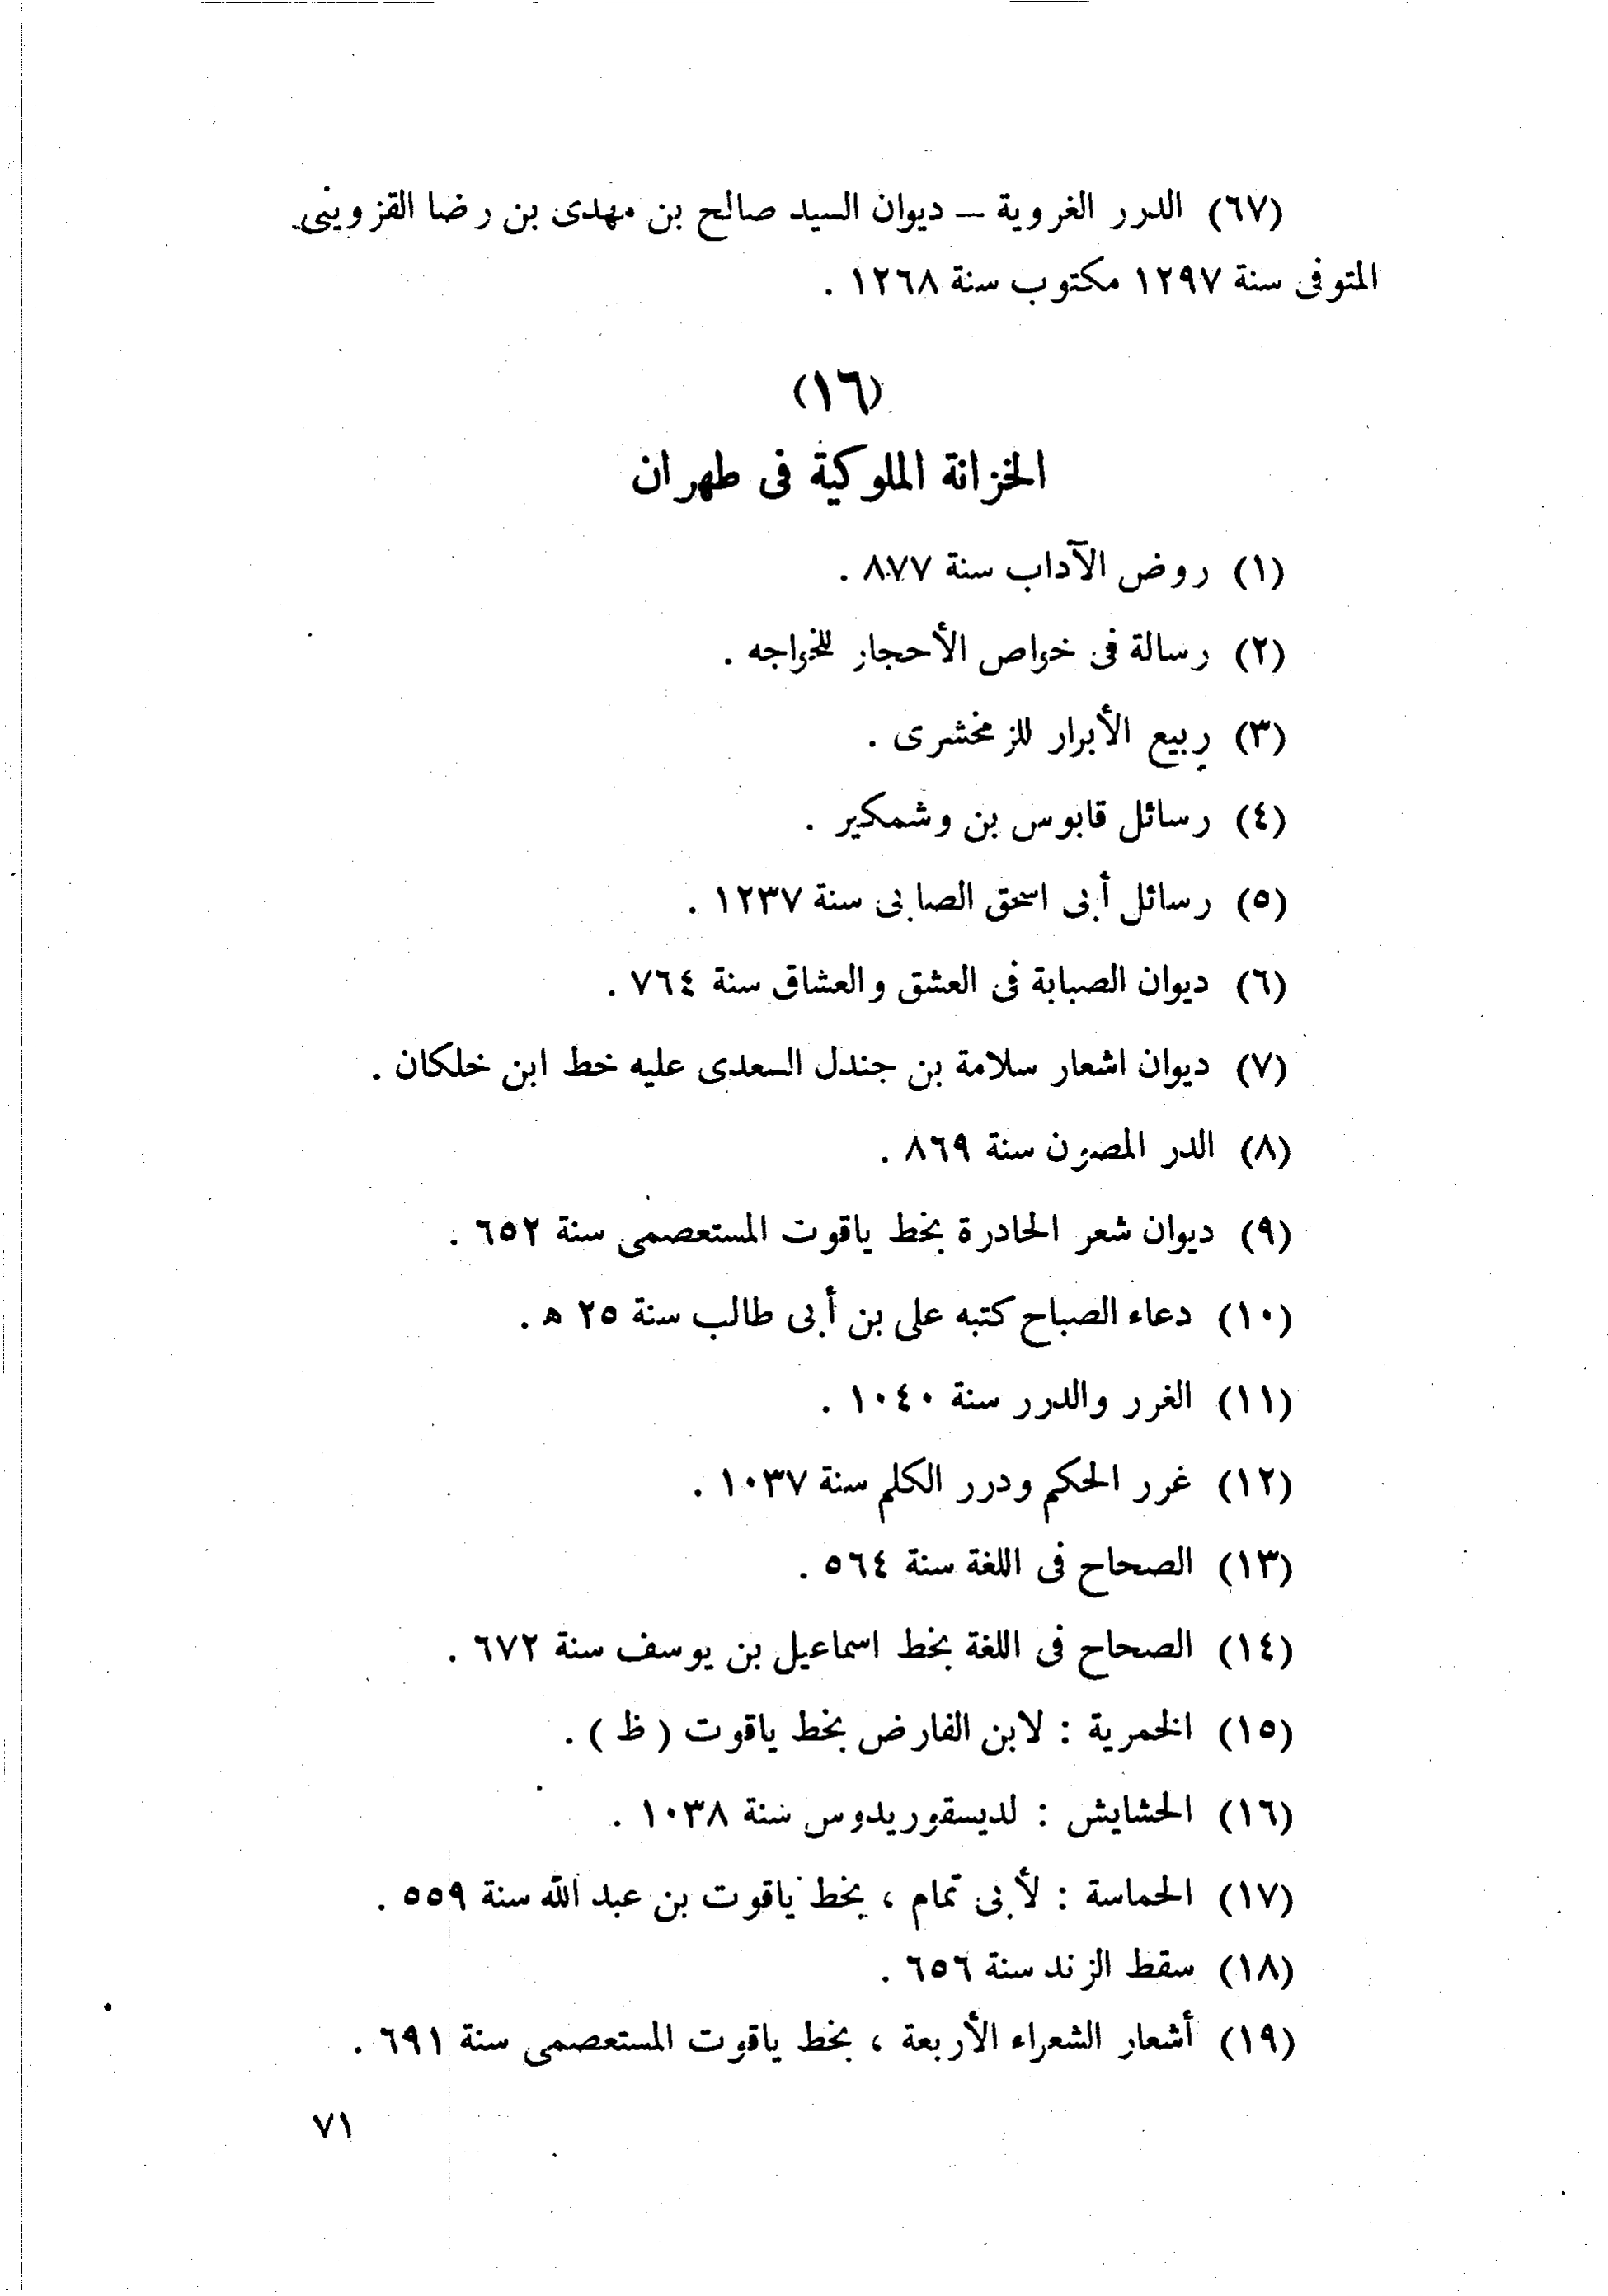 (٦٧) الدرر الغروية – ديوان السيد صالح بن مهدى بن رضا القزوينى
المتوفى سنة ١٢٩٧ مكتوب سنة ١٢٦٨ .
(١٦)
الخزانة الملوكية فى طهران
(١) روض الآداب سنة ٨٧٧ .
(٢) رسالة فى خواص الأحجار للخواجه .
(٣) ربيع الأبرار للزمخشرى .
(٤) رسائل قابوس بن وشمكير .
(٥) رسائل أبى اسحق الصابى سنة ١٢٣٧ .
(٦) ديوان الصبابة فى العشق والعشاق سنة ٧٦٤ .
(٧) ديوان اشعار سلامة بن جندل السعدى عليه خط ابن خلكان .
(٨) الدر المصون سنة ٨٦٩ .
(٩) ديوان شعر الحادرة بخط ياقوت المستعصمى سنة ٦٥٢ .
(١٠) دعاء الصباح كتبه على بن أبى طالب سنة ٢٥ ه .
(١١) الغرر والدرر سنة ١٠٤٠ .
(١٢) غرر الحكم ودرر الكلم سنة ١٠٣٧ .
(١٣) الصحاح فى اللغة سنة ٥٦٤ .
(١٤) الصحاح فى اللغة بخط اسماعيل بن يوسف سنة ٦٧٢ .
(١٥) الخمرية : لابن الفارض بخط ياقوت ( ظ ) .
(١٦) الحشايش : لديسقوريدوس سنة ١٠٣٨ .
(١٧) الحماسة : لأبى تمام ، بخط ياقوت بن عبد الله سنة ٥٥٩ .
(١٨) سقط الزند سنة ٦٥٦ .
(١٩) أشعار الشعراء الأربعة ، بخط ياقوت المستعصمى سنة ٦٩١ .
٧١